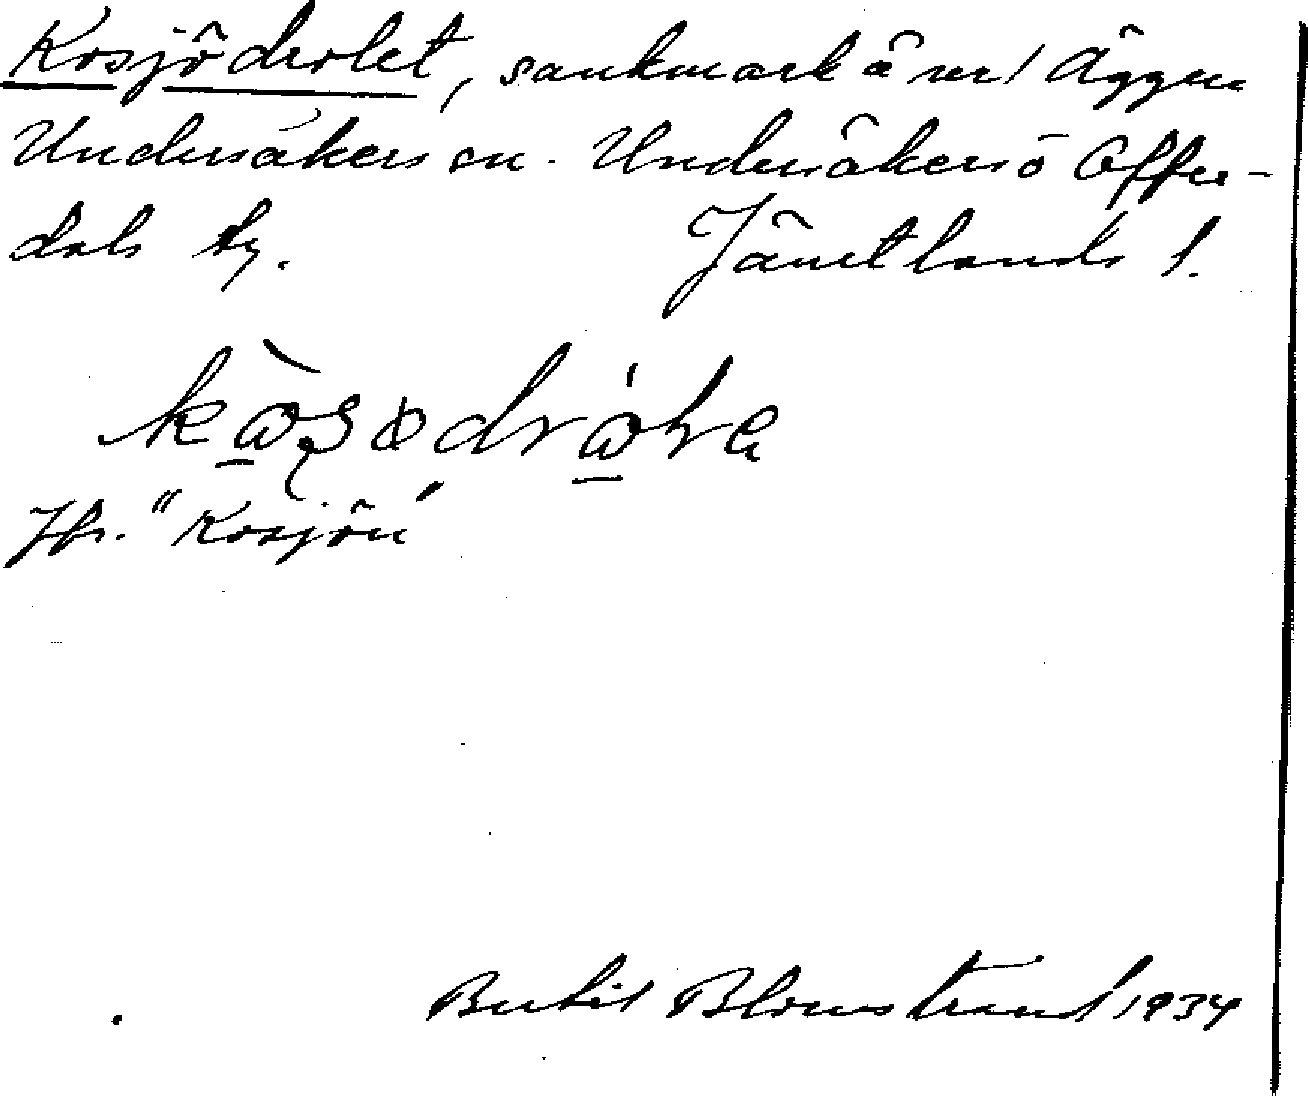 Kosjödrolet, sankmark å ver/ Äggen
Undersåkers sn. Undersåkers o Offer-
dals tg. Jämtlands l.
Jfr. "Kosjön"
Bertil Blomstrand 1934